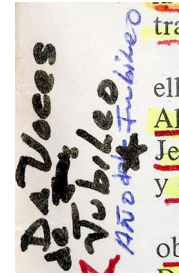 Da Voces
de
Jubileo
Año del Jubileo
tra
ell
Al
Je
y
ob